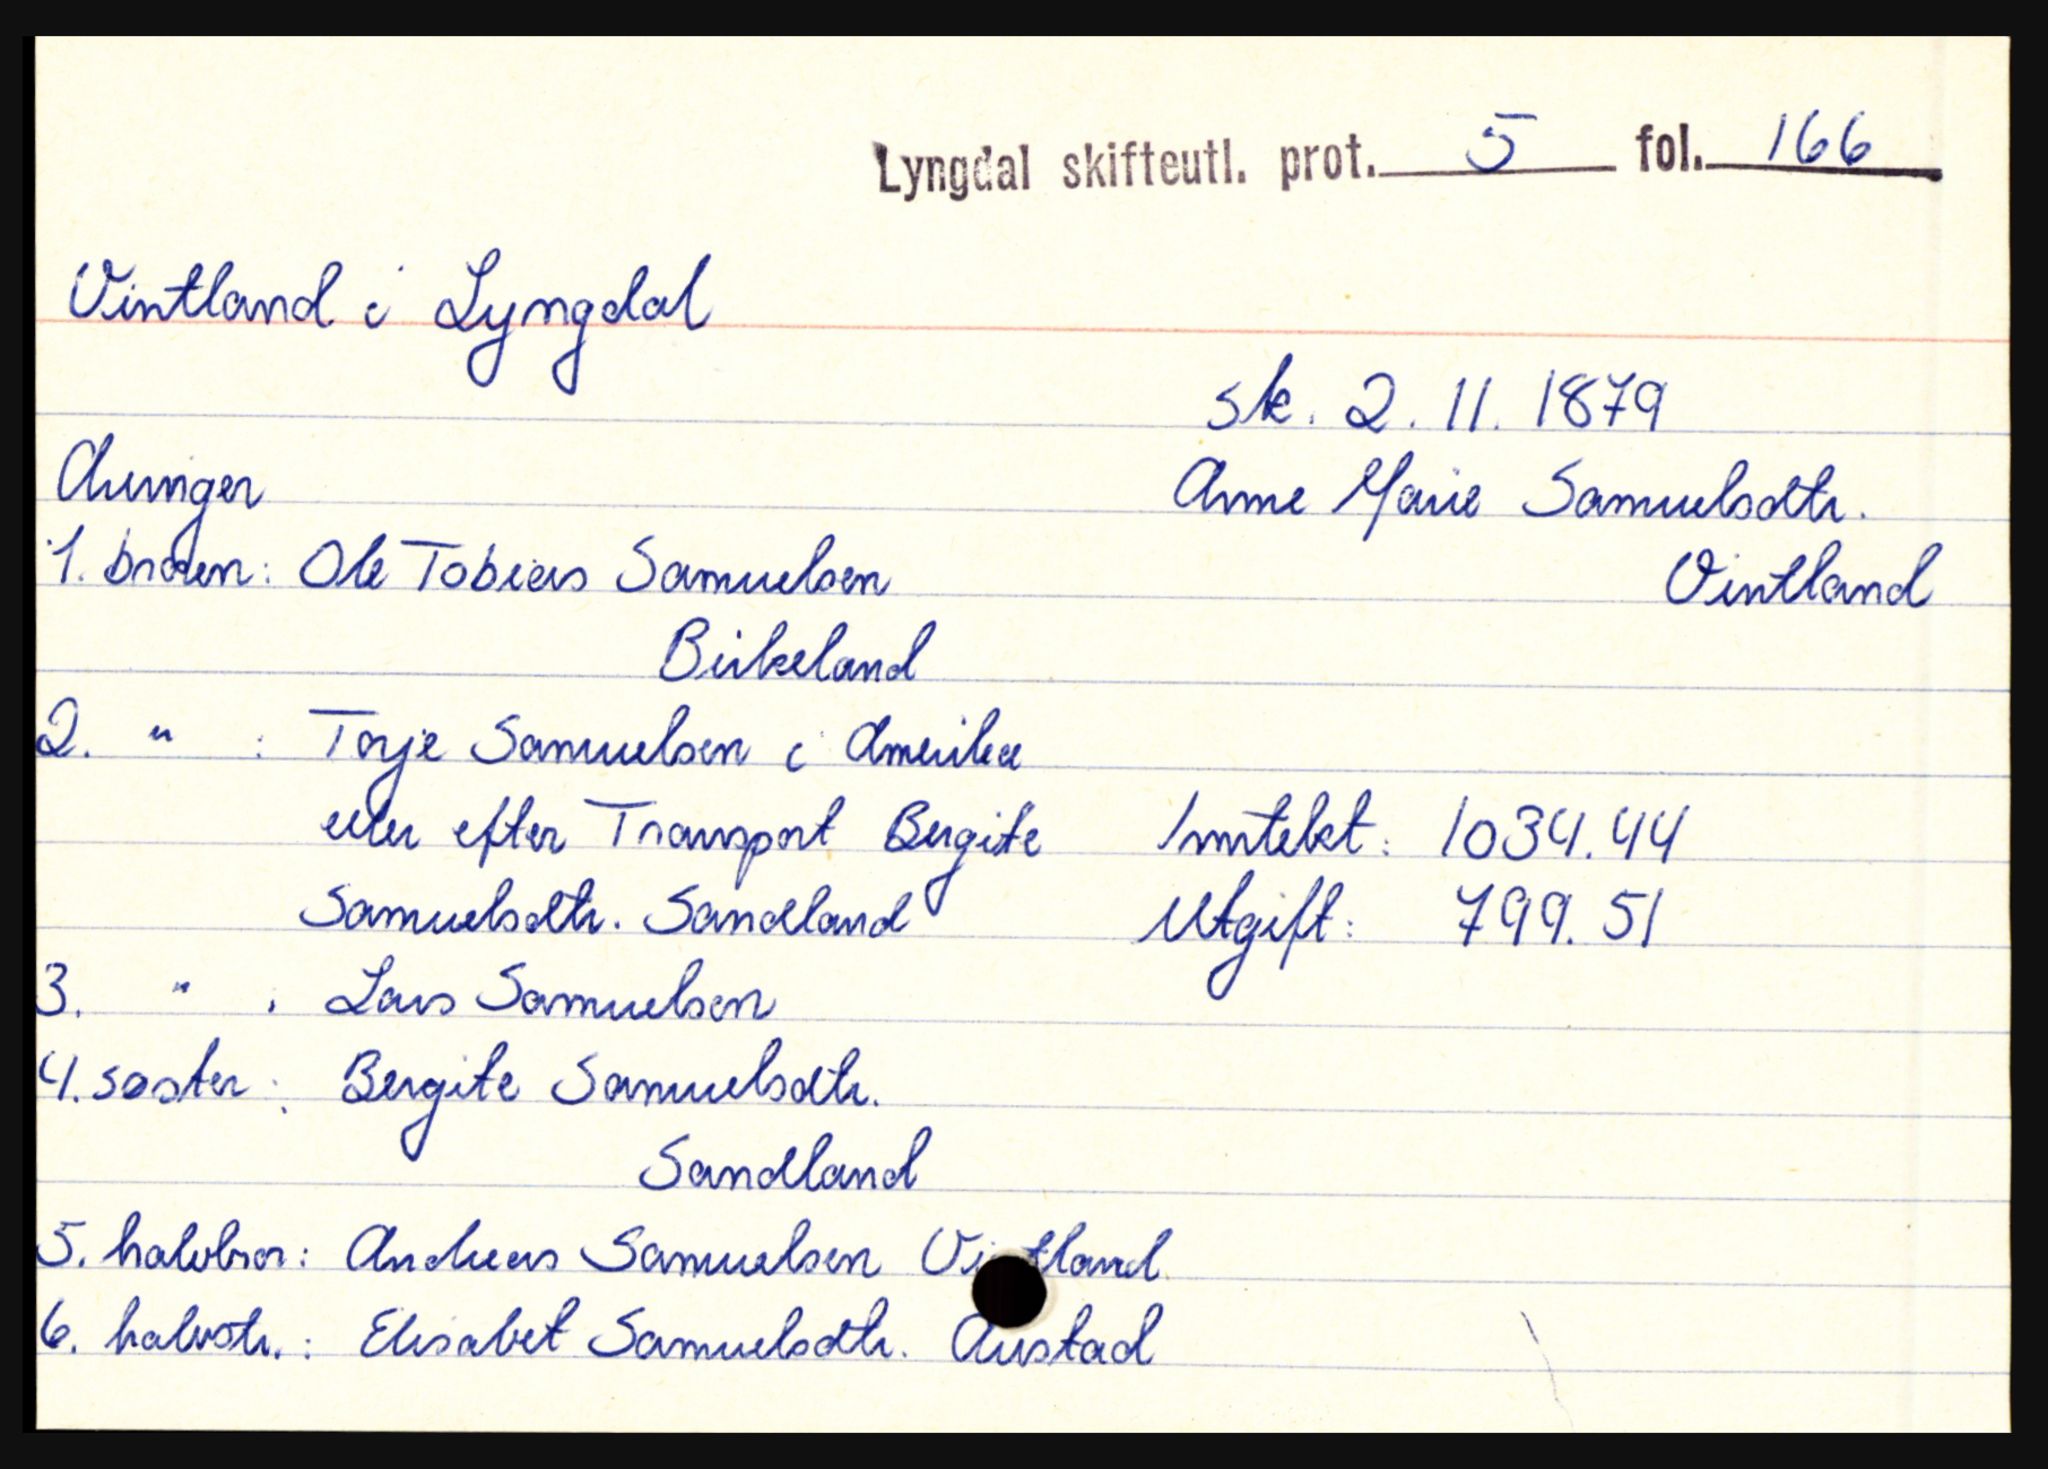 Lyngdal skifteutl. prot. 5 fol. 166
Vintland i Lyngdal
sk. 2.11.1879
Anne Marie Samuelsdtr.
Vintland
Arvinger
1. broren: Ole Tobias Samuelsen
Birkeland
2. " : Torje Samuelsen i Amerika
eller efter Transport Bergite
Samuelsdtr. Sandland
Inntekt: 1034.44
Utgift: 799.51
3. " : Lars Samuelsen
4. søster: Bergite Samuelsdtr.
Sandland
5. halvbror: Andreas Samuelsen Vintland
6. halvstr.: Elisabet Samuelsdtr. Austad